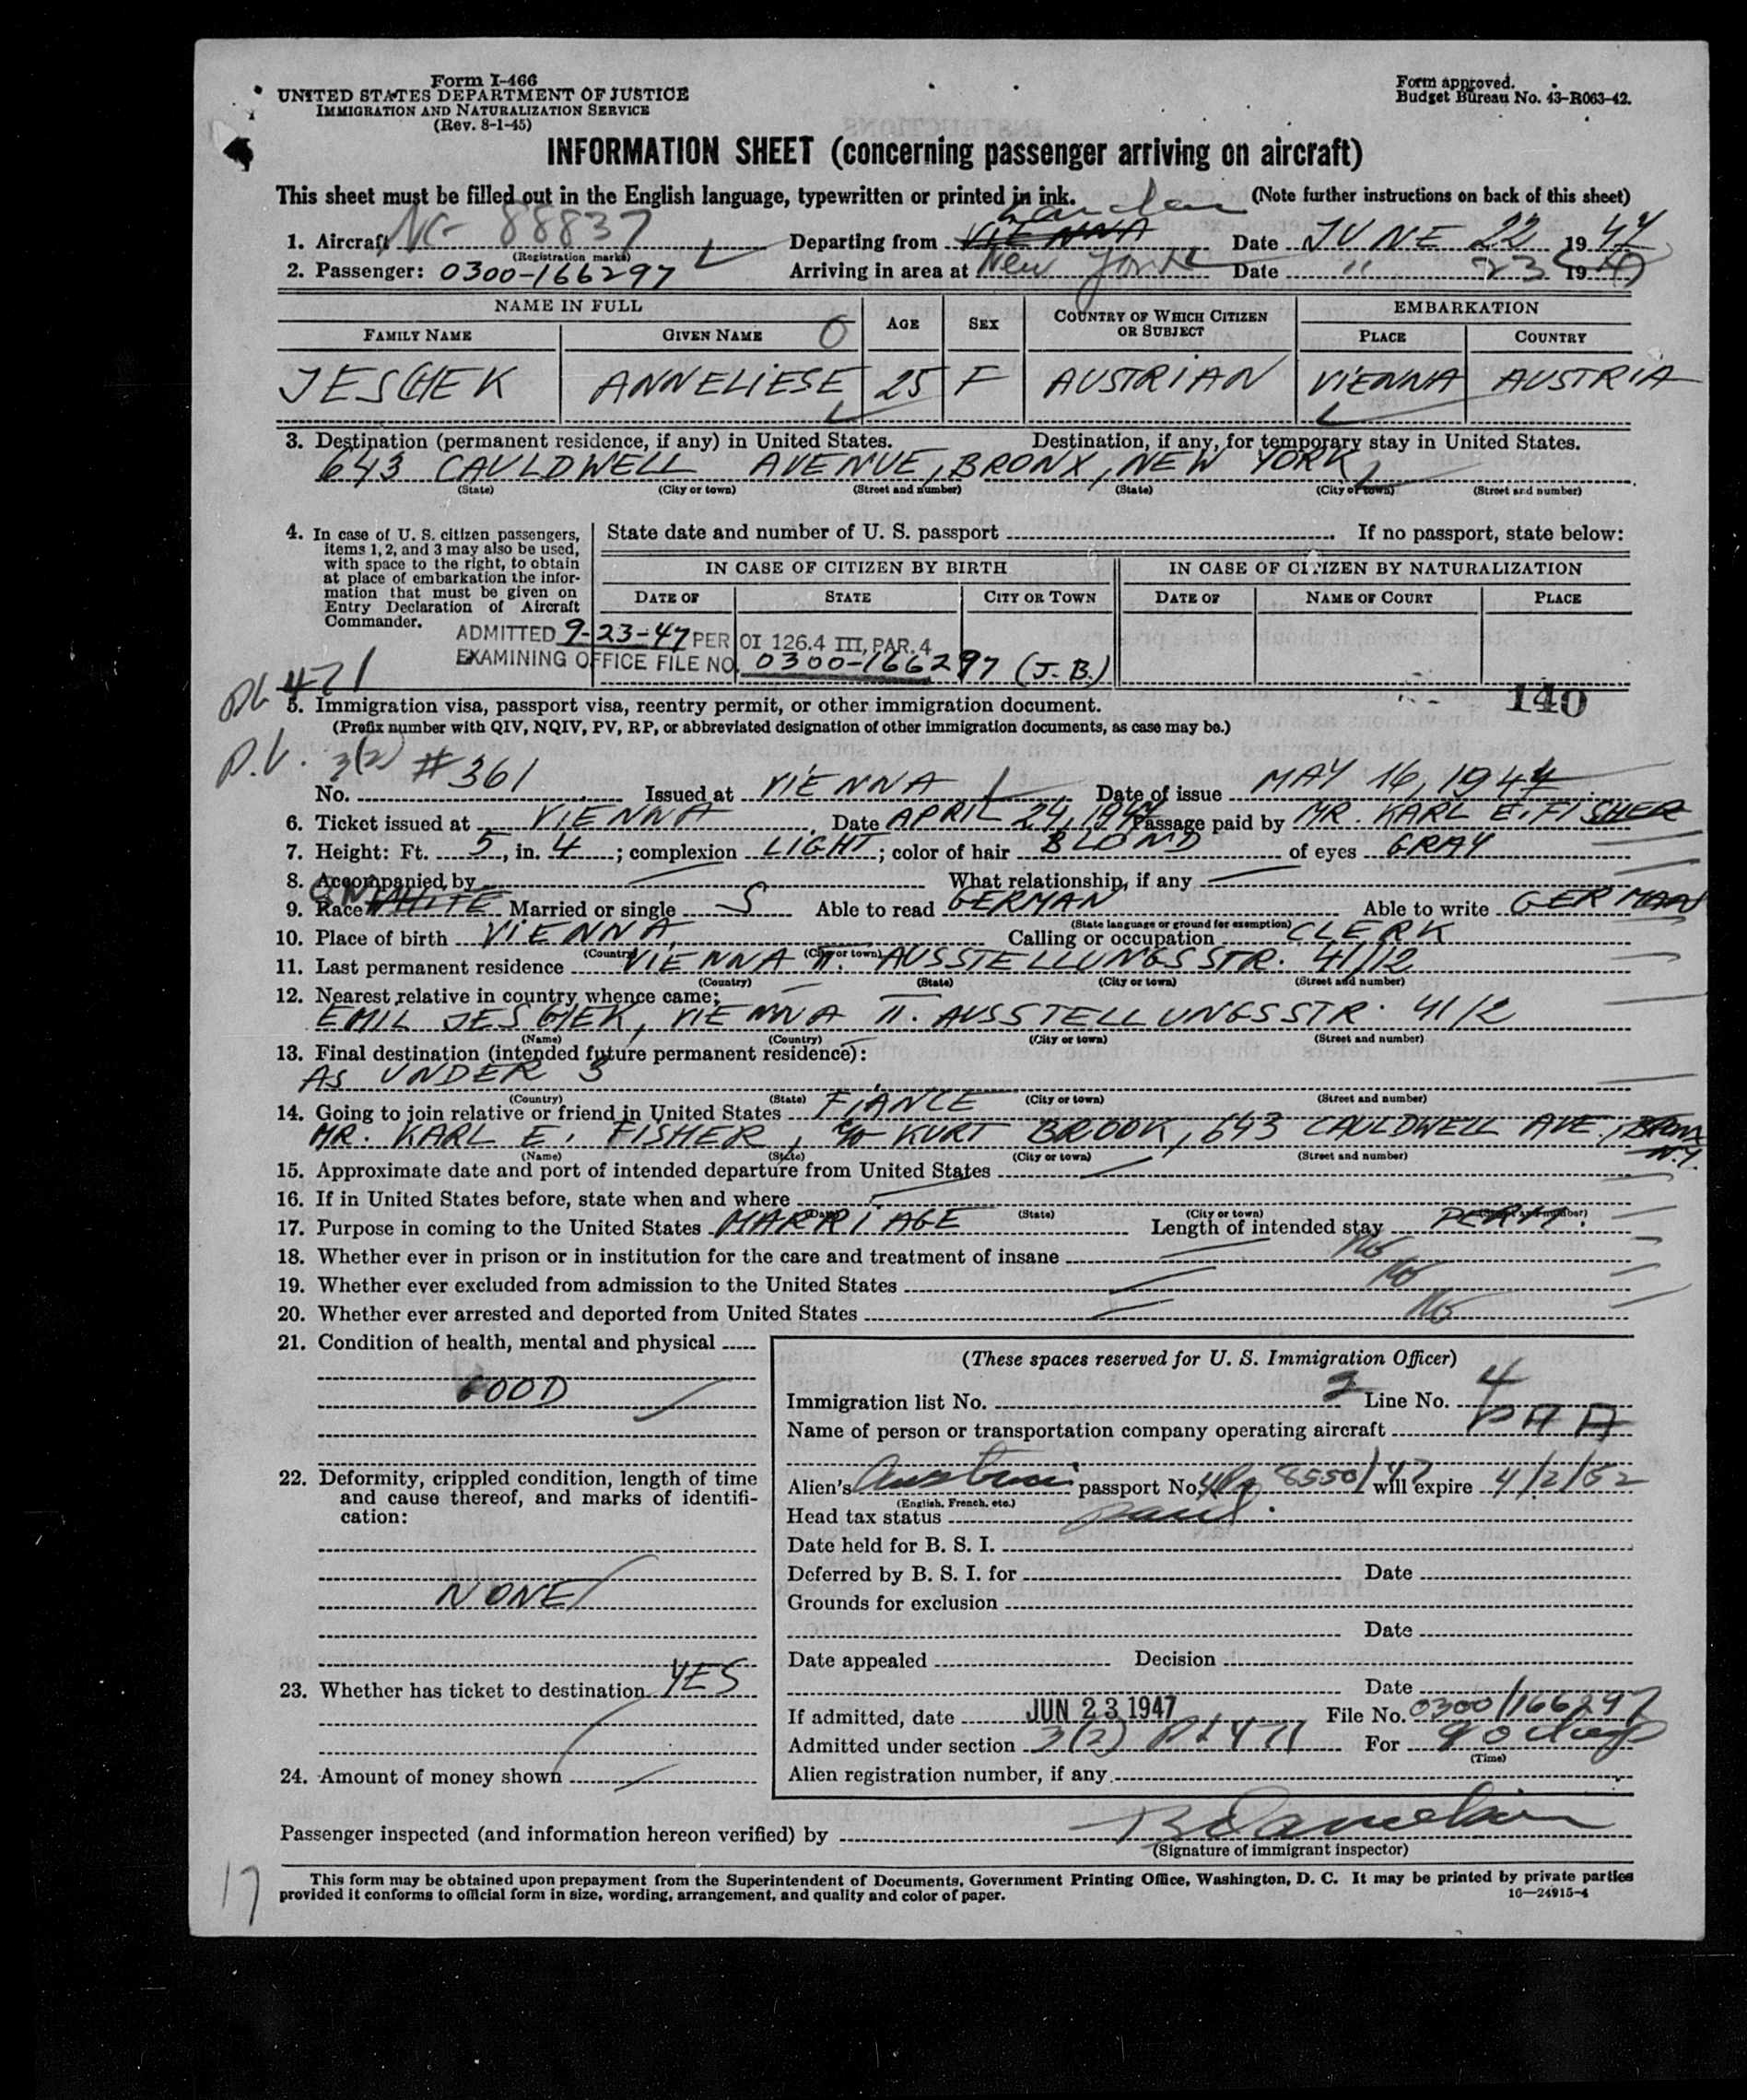 Form I-466
UNITED STATES DEPARTMENT OF JUSTICE
IMMIGRATION AND NATURALIZATION SERVICE
(Rev. 8-1-45)
Form approved.
Budget Bureau No. 43-R063-42.
INFORMATION SHEET (concerning passenger arriving on aircraft)
This sheet must be filled out in the English language, typewritten or printed in ink. (Note further instructions on back of this sheet)
London
1. Aircraft NC-88837 Departing from VIENNA Date JUNE 22 1947
(Registration marks)
2. Passenger: 0300-166297 Arriving in area at New York Date " 23 1947
NAME IN FULL AGE SEX COUNTRY OF WHICH CITIZEN OR SUBJECT EMBARKATION
FAMILY NAME GIVEN NAME PLACE COUNTRY
JESCHEK ANNELIESE 25 F AUSTRIAN VIENNA AUSTRIA
3. Destination (permanent residence, if any) in United States. Destination, if any, for temporary stay in United States.
643 CAULDWELL AVENUE, BRONX, NEW YORK
(State) (City or town) (Street and number) (State) (City or town) (Street and number)
4. In case of U. S. citizen passengers, items 1, 2, and 3 may also be used, with space to the right, to obtain at place of embarkation the information that must be given on Entry Declaration of Aircraft Commander.
State date and number of U. S. passport If no passport, state below:
IN CASE OF CITIZEN BY BIRTH IN CASE OF CITIZEN BY NATURALIZATION
DATE OF STATE CITY OR TOWN DATE OF NAME OF COURT PLACE
ADMITTED 9-23-47 PER OI 126.4 III, PAR. 4
EXAMINING OFFICE FILE NO. 0300-166297 (J.B.)
PL 471
140
5. Immigration visa, passport visa, reentry permit, or other immigration document.
(Prefix number with QIV, NQIV, PV, RP, or abbreviated designation of other immigration documents, as case may be.)
P.V. 3(2) #361
No. Issued at VIENNA Date of issue MAY 16, 1947
6. Ticket issued at VIENNA Date APRIL 24, 1947 Passage paid by MR. KARL E. FISHER
7. Height: Ft. 5, in. 4; complexion LIGHT; color of hair BLOND of eyes GRAY
8. Accompanied by What relationship, if any
9. Race WHITE Married or single S Able to read GERMAN Able to write GERMAN
(State language or ground for exemption)
10. Place of birth VIENNA Calling or occupation CLERK
(Country) (City or town)
11. Last permanent residence VIENNA II. AUSSTELLUNGSSTR. 41/12
(Country) (State) (City or town) (Street and number)
12. Nearest relative in country whence came:
EMIL JESCHEK, VIENNA II. AUSSTELLUNGSSTR. 41/2
(Name) (Country) (City or town) (Street and number)
13. Final destination (intended future permanent residence):
AS UNDER 3
(Country) (State) (City or town) (Street and number)
14. Going to join relative or friend in United States FIANCE
MR. KARL E. FISHER, c/o KURT BROOK, 643 CAULDWELL AVE, BRONX N.Y.
(Name) (State) (City or town) (Street and number)
15. Approximate date and port of intended departure from United States
16. If in United States before, state when and where
(Date) (State) (City or town) (Street and number)
17. Purpose in coming to the United States MARRIAGE Length of intended stay PERM.
18. Whether ever in prison or in institution for the care and treatment of insane No
19. Whether ever excluded from admission to the United States No
20. Whether ever arrested and deported from United States No
21. Condition of health, mental and physical
GOOD
22. Deformity, crippled condition, length of time and cause thereof, and marks of identification:
NONE
23. Whether has ticket to destination YES
24. Amount of money shown
(These spaces reserved for U. S. Immigration Officer)
Immigration list No. 2 Line No. 4
Name of person or transportation company operating aircraft PAA
Alien's Austrian passport No. 8550/47 will expire 4/2/52
(English, French, etc.)
Head tax status
Date held for B. S. I.
Deferred by B. S. I. for Date
Grounds for exclusion
Date
Date appealed Decision
Date
If admitted, date JUN 23 1947 File No. 0300/166297
Admitted under section 3(2) PL 471 For 90 days
(Time)
Alien registration number, if any
Passenger inspected (and information hereon verified) by
(Signature of immigrant inspector)
17
This form may be obtained upon prepayment from the Superintendent of Documents, Government Printing Office, Washington, D. C. It may be printed by private parties
provided it conforms to official form in size, wording, arrangement, and quality and color of paper. 16—24915-4